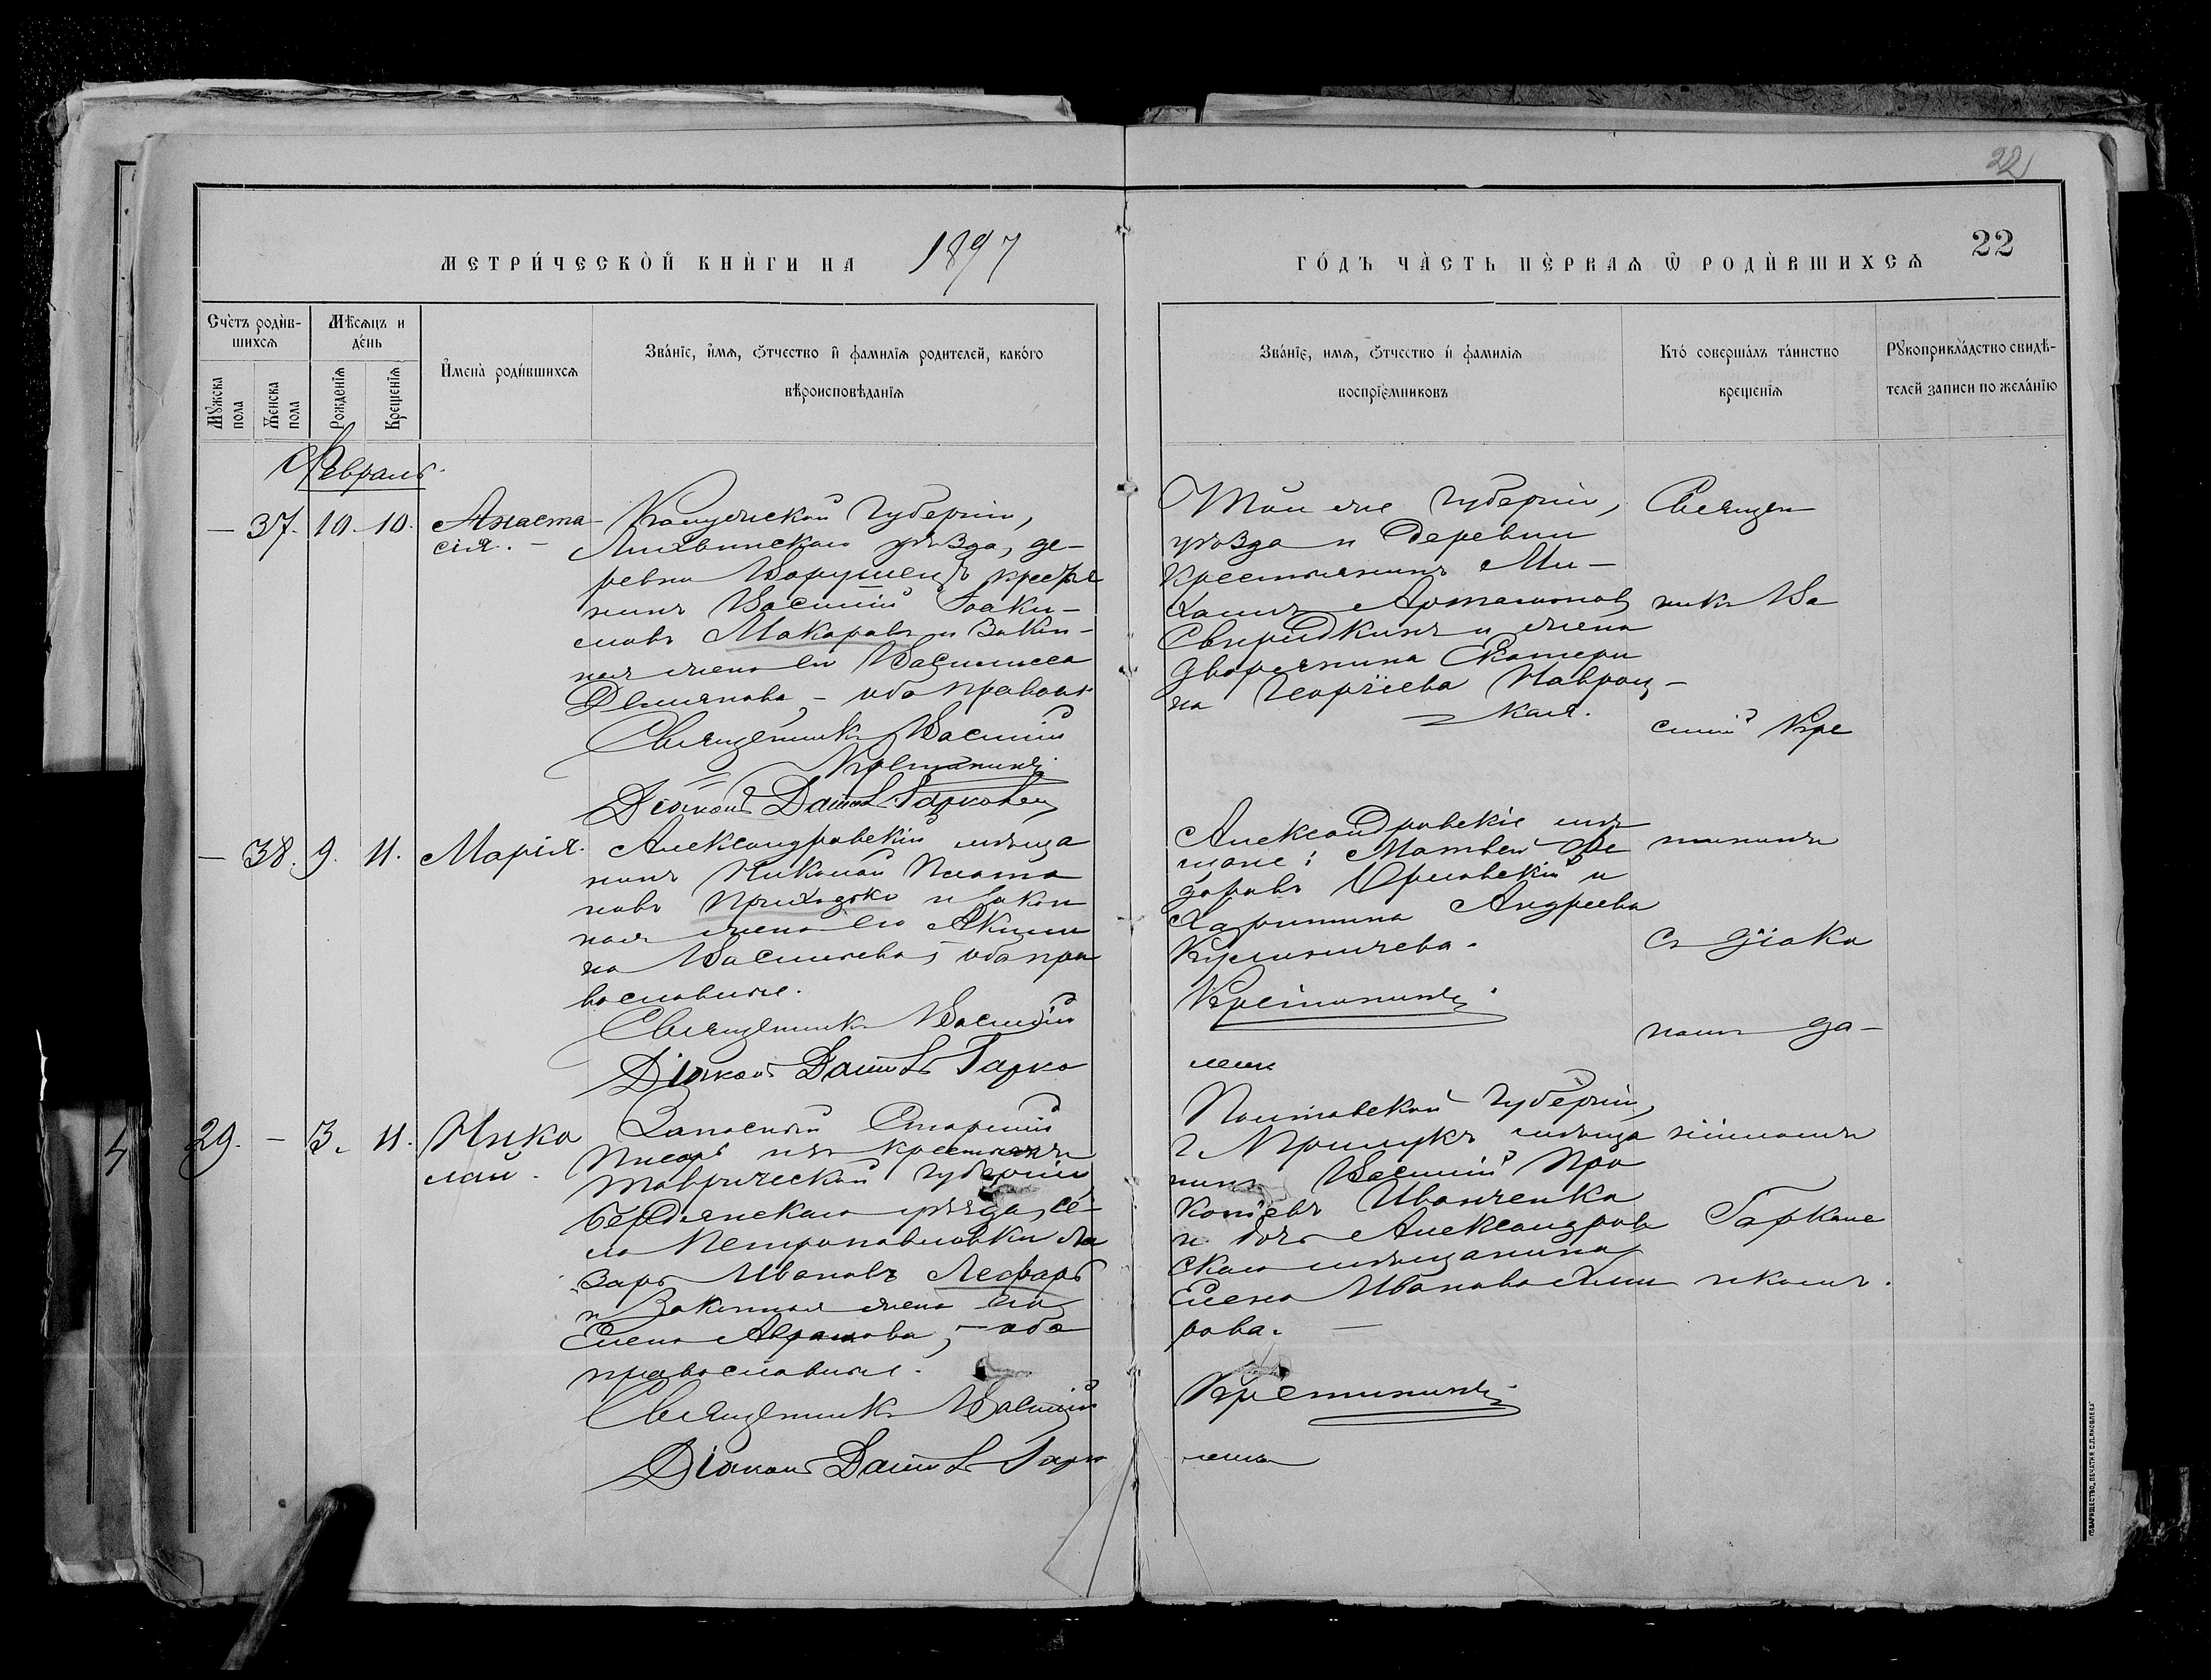 22
МЕТРИЧЕСКОЙ КНИГИ НА 1897
ГОДЪ ЧАСТЬ ПЕРВАЯ Ѡ РОДИВШИХСЯ
22
Счетъ родив-
шихся
Мѣсяцъ и
день
Имена родившихся
Званіе, имя, отчество и фамилія родителей, какого
вѣроисповѣданія
Мужеска
пола
Женска
пола
Рожденія
Крещенія
Званіе, имя, отчество и фамилія
воспріемниковъ
Кто совершалъ таинство
крещенія
Рукоприкладство свидѣ-
телей записи по желанію
Февраль
— 37. 10. 10. Анаста-
сія. —
Калужской Губерніи,
Лихвинскаго уѣзда, де-
ревни
нинъ Василій Іоаки-
мовъ Макаровъ и закон-
ная жена его Васимисса
Демьянова, — оба правосл.
Священникъ Василій
Крестининъ.
Діаконъ
Той же губерніи,
уѣзда и деревни
крестьянинъ Ми-
хаилъ Артамонов
Свиридкинъ и жена
дворянина Екатери
на Георгіева Навроц-
кая.
Священ
никъ Ва
силій Кре
— 38. 9. 11. Марія.
Александровскій мѣща
нинъ Николай Плато
новъ Приходько и закон
ная жена его Акили
на Васильева, оба пра
вославные.
Священникъ Василій
Діаконъ
Александровскіе мѣ
щане: Матвей Фе
доровъ Орловскій и
Харитина Андреева
Кузьмичева.
Крестининъ.
тининъ
съ діако
номъ Да-
29. — 3. 11. Нико
лай.
Запасный Старшій
Писарь изъ крестьянъ
Таврической губерніи
Бердянскаго уѣзда, се-
ла Петропавловки Ла
зарь Ивановъ Лесфарь
и Законная жена его
Елена Абрамова, — оба
православные.
Священникъ Василій
Діаконъ
Полтавской губерніи,
г. Прилукъ мѣща
нинъ Василій Про
копіевъ Иванченко
и дочь Александров
скаго мѣщанина
Елена Иванова
рова. —
Крестининъ.
ніиломъ
Гаркаве
нкомъ.